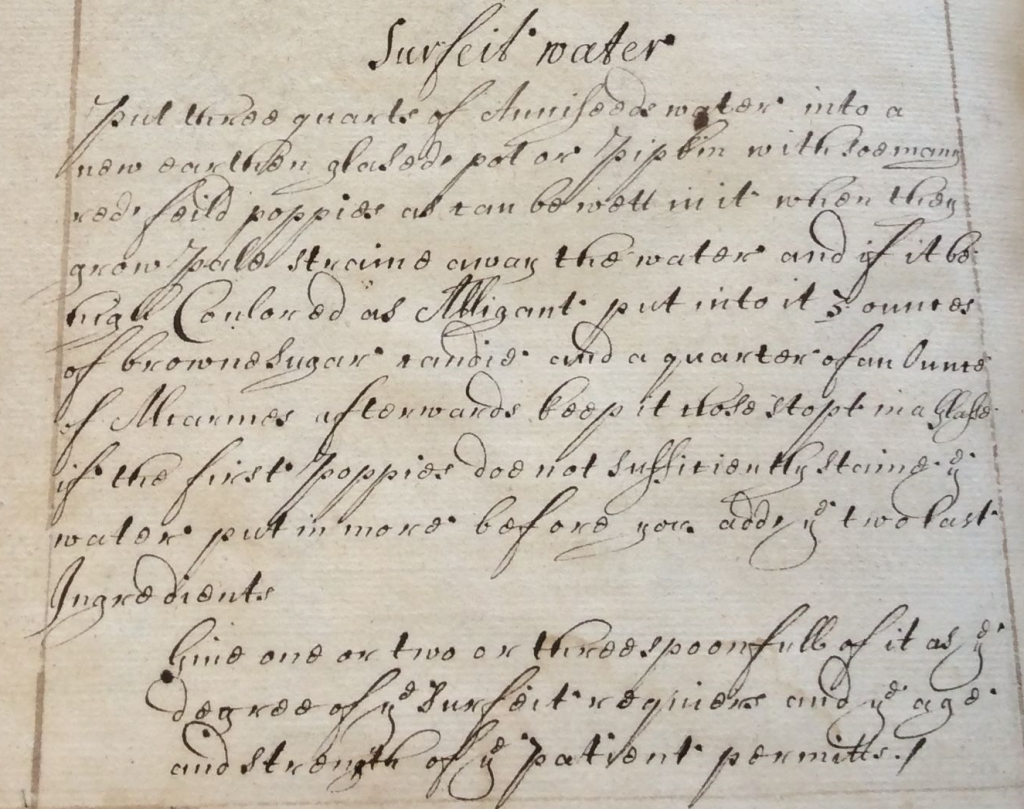 Surfeit water
Put three quarts of Anniseeds water into a
new earthen glased pot or Pipkin with soe many
red feild poppies as can be wett in it when they
grow Pale straine away the water and if it be
high Coulored as Alligant put into it 3 ounces
of browne Sugar candie and a quarter of an Ounce
of Alcarmes afterwards keep it close stopt in a Glasse
if the first Poppies doe not sufficiently staine yᵉ
water put in more before you adde yᵉ two last
Ingredients
Give one or two or three spoonfull of it as yᵉ
degree of yᵉ Surfeit requiers and yᵉ age
and strength of yᵉ Patient permitts./